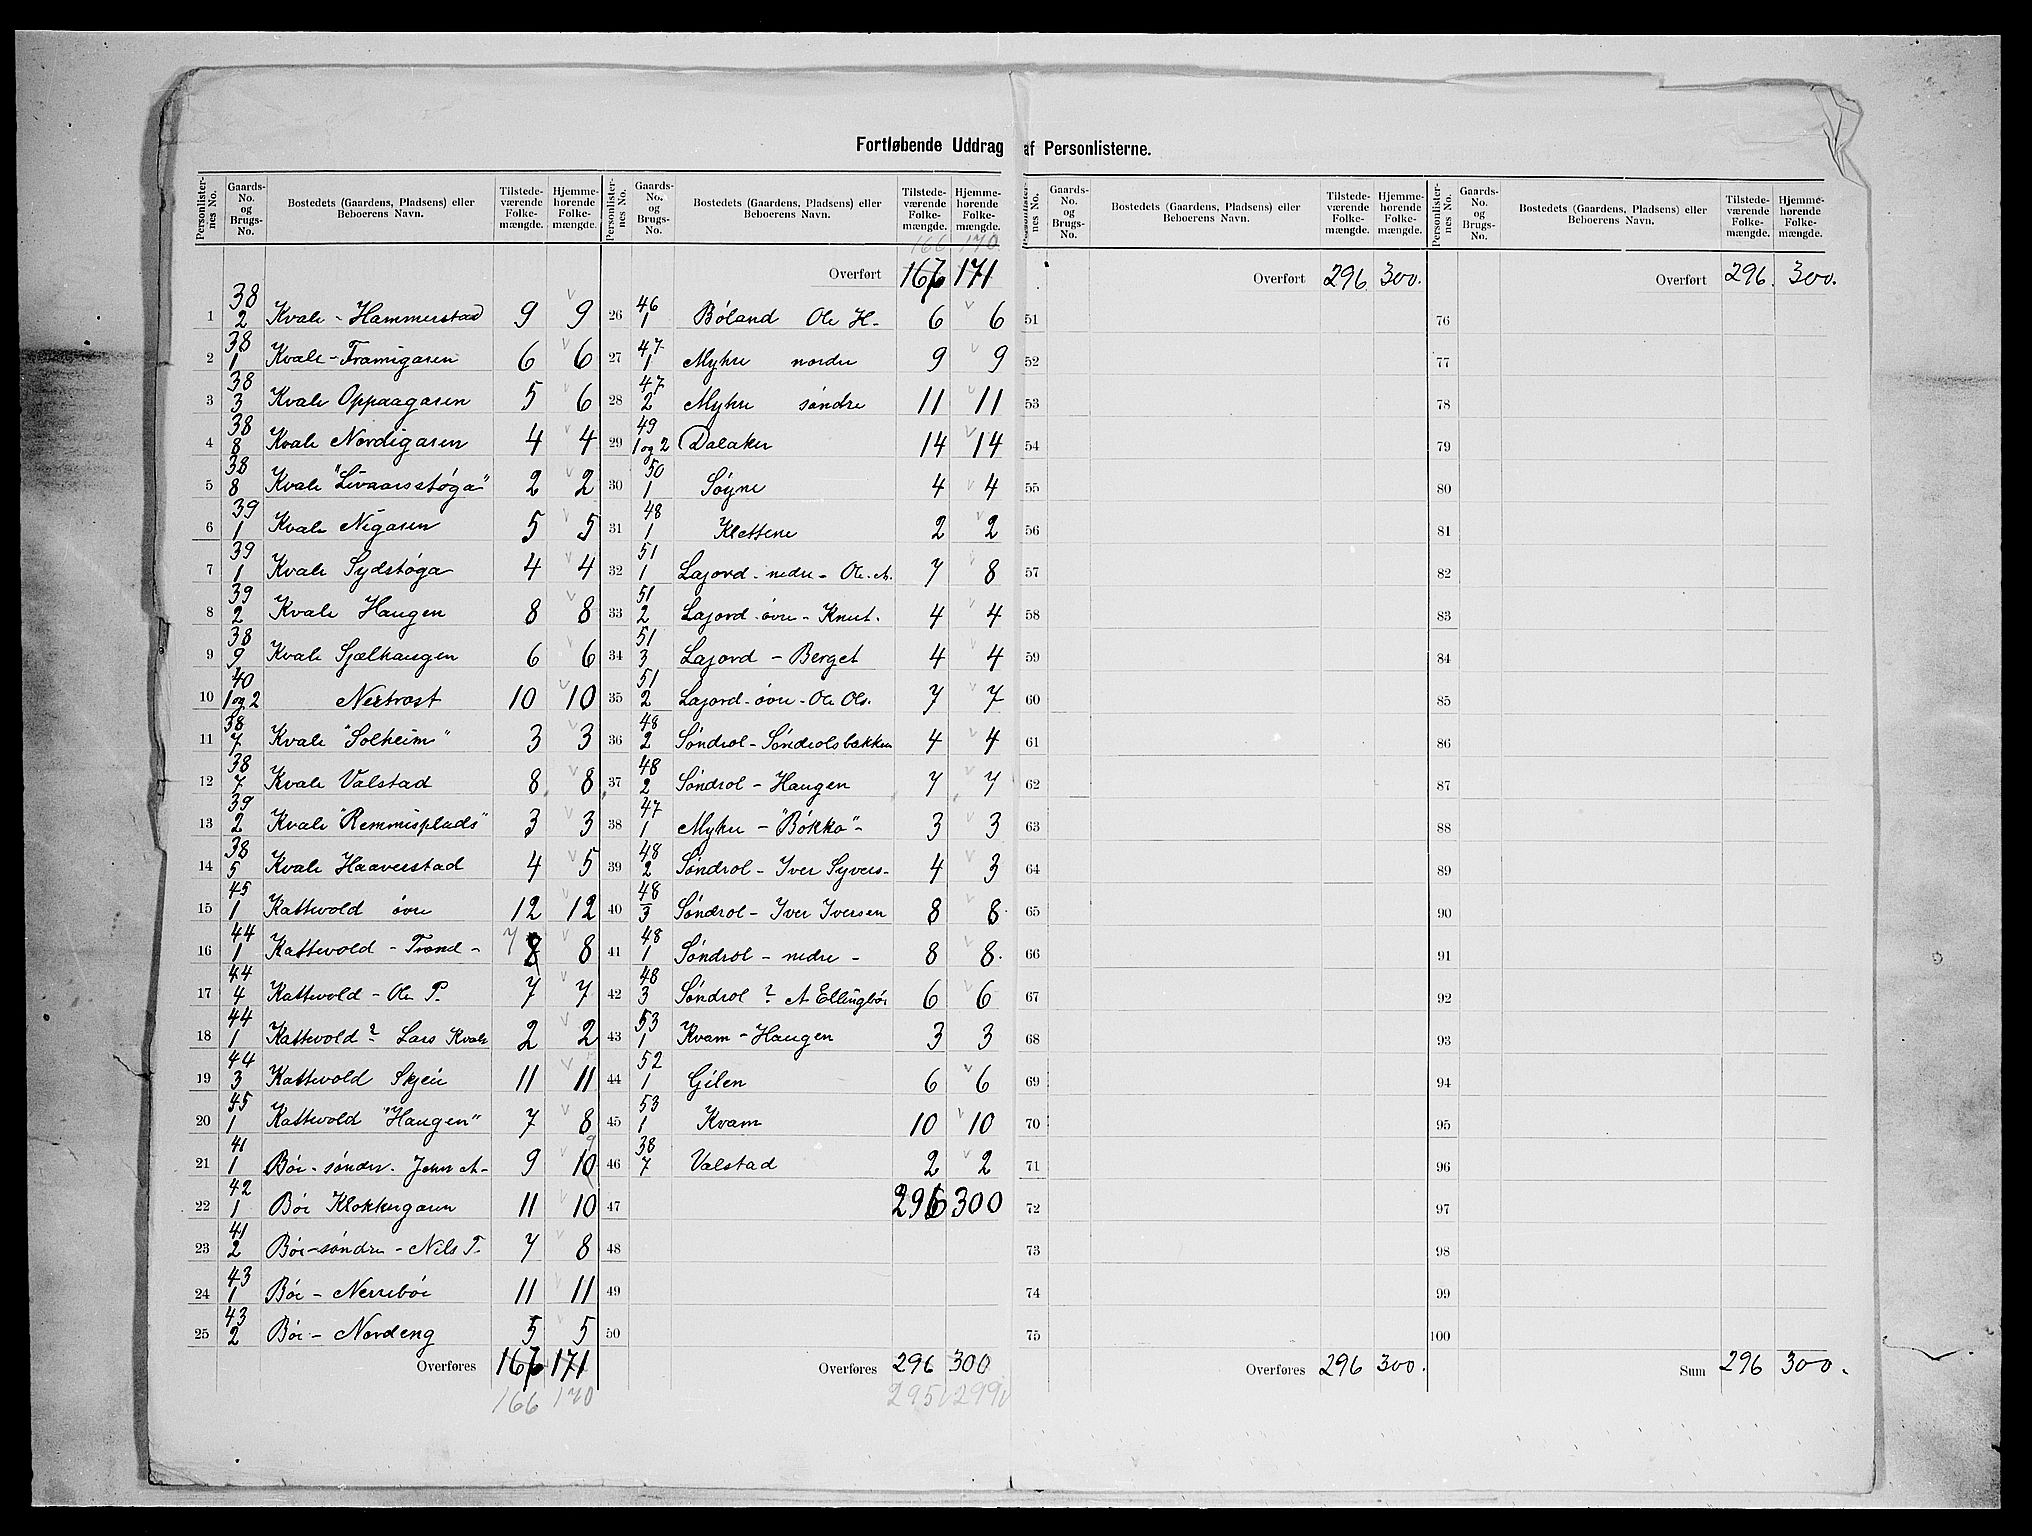 Fortløbende Uddrag af Personlisterne.
Personlister-nes No. Gaards-No. og Brugs-No. Bostedets (Gaardens, Pladsens) eller Beboerens Navn. Tilstede-værende Folke-mængde. Hjemme-hørende Folke-mængde.
1 38 2 Kvale - Hammerstad 9 9
2 38 1 Kvale - Framigaren 6 6
3 38 3 Kvale Oppaagaren 5 6
4 38 8 Kvale Nordigaren 4 4
5 38 8 Kvale "Livaarsstøga" 2 2
6 39 1 Kvale Nigaren 5 5
7 39 1 Kvale Sydstøga 4 4
8 39 2 Kvale Haugen 8 8
9 38 9 Kvale Sjælhaugen 6 6
10 40 1 og 2 Nertrost 10 10
11 38 7 Kvale "Solheim" 3 3
12 38 7 Kvale Valstad 8 8
13 39 2 Kvale "Remmisplads" 3 3
14 38 5 Kvale Haaverstad 4 5
15 45 1 Kattevold øvre 12 12
16 44 1 Kattevold - Trond - 7 8 8
17 44 4 Kattevold - Ole P. 7 7
18 44 1 Kattevold ? Lars Kvale 2 2
19 44 3 Kattevold Skjeie 11 11
20 45 1 Kattevold "Haugen" 7 8
21 41 1 Bøe - søndre. Jens A- 9 10 9
22 42 1 Bøe Klokkergaren 11 10
23 41 2 Bøe - søndre - Nils T. 7 8
24 43 1 Bøe - Nerrebøe 11 11
25 43 2 Bøe - Nordeng 5 5
Overføres 167 171
166 170
Personlister-nes No. Gaards-No. og Brugs-No. Bostedets (Gaardens, Pladsens) eller Beboerens Navn. Tilstede-værende Folke-mængde. Hjemme-hørende Folke-mængde.
166 170
Overført 167 171
26 46 1 Bøland Ole H- 6 6
27 47 1 Myhre nordre 9 9
28 47 2 Myhre søndre 11 11
29 49 1 og 2 Dalaker 14 14
30 50 1 Søyne 4 4
31 48 1 Klettene 2 2
32 51 1 Lajord - nedre - Ole A. 7 8
33 51 2 Lajord - øvre - Knut. 4 4
34 51 3 Lajord - Berget 4 4
35 51 2 Lajord - øvre - Ole Ols. 7 7
36 48 2 Søndrol - Søndrolsbakken 4 4
37 48 2 Søndrol - Haugen 7 7
38 47 1 Myhre - "Bøkko" - 3 3
39 48 2 Søndrol - Iver Syvers- 4 3
40 48 3 Søndrol - Iver Iversen 8 8
41 48 1 Søndrol - nedre - 8 8
42 48 3 Søndrol ? A Ellingbøe 6 6
43 53 1 Kvam - Haugen 3 3
44 52 1 Gilen 6 6
45 53 1 Kvam 10 10
46 38 7 Valstad 2 2
47 296 300
48
49
50
Overføres 296 300
295 299
Personlister-nes No. Gaards-No. og Brugs-No. Bostedets (Gaardens, Pladsens) eller Beboerens Navn. Tilstede-værende Folke-mængde. Hjemme-hørende Folke-mængde.
Overført 296 300.
51
52
53
54
55
56
57
58
59
60
61
62
63
64
65
66
67
68
69
70
71
72
73
74
75
Overføres 296 300.
Personlister-nes No. Gaards-No. og Brugs-No. Bostedets (Gaardens, Pladsens) eller Beboerens Navn. Tilstede-værende Folke-mængde. Hjemme-hørende Folke-mængde.
Overført 296. 300.
76
77
78
79
80
81
82
83
84
85
86
87
88
89
90
91
92
93
94
95
96
97
98
99
100
Sum 296 300.